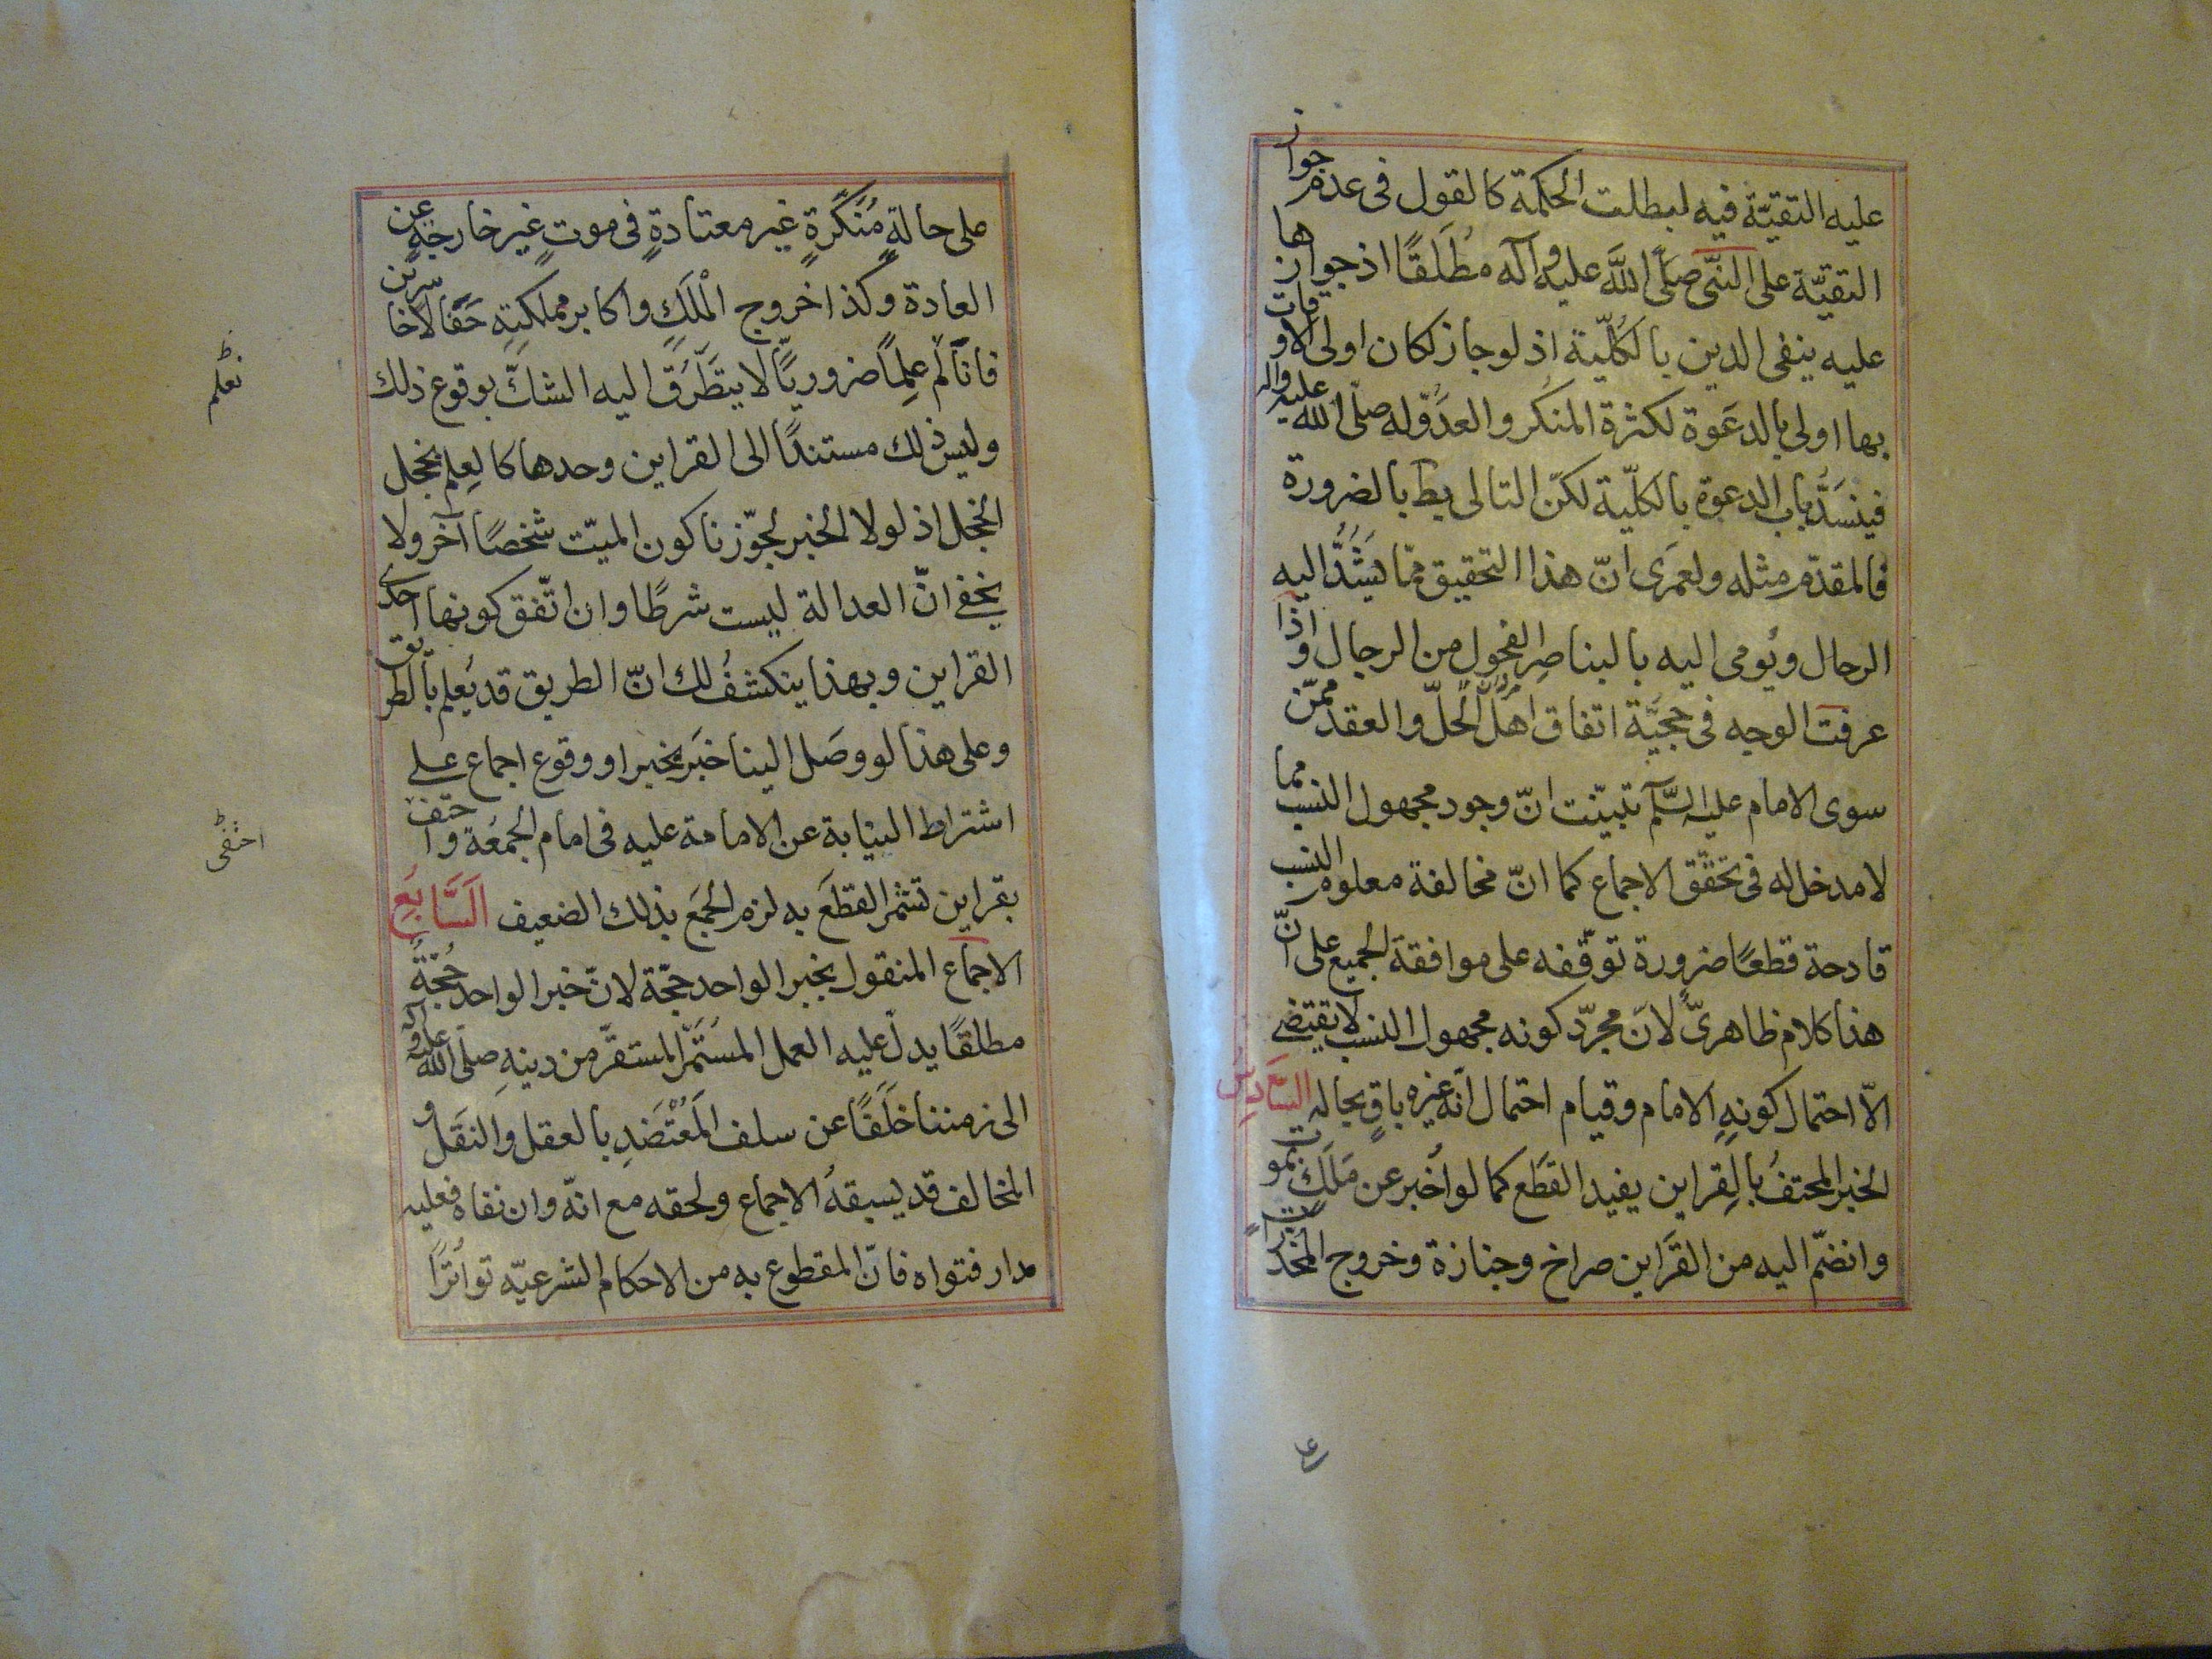 عليه التقيّة فيه لبطلت الحكمة كالقول فى عدم جواز
التقيّة على النبّى صَلَّى اللَّه عليه وآله مطُلَقًا اذ جوازها
عليه ينفى الدين بالكُلّية اذ لو جاز لكان اولى الاوقات
بها اولى بالدعَوة لكثرة المنكر والعدَّو له صلّى الله عليه واله
فينسَدُّ باب الدعوة بالكلّية لكنّ التالى بط بالضرورة
فالمقدّم مثله ولعمرَى انّ هذا التحقيق ممّا يشَدُّ اليه
الرحال ويُومى اليه بالبناصِر الفحُول من الرجال واذا
عرفت الوجه فى حجيَّة اتفاق اهل الحَلّ والعقد ممّن
سوى الامام عليه السَّلم تبيّنت انّ وجود مجهول النسب مما
لا مدخل له فى تحقّق الاجماع كما انّ مخالفة معلوم النسب
قادحة قطعًا ضرورة توقّفه على موافقة الجميع على انّ
هذا كلام ظاهرىّ لانّ مجرّد كونه مجهول النسب لا يقتضے
الاّ احتمال كونهِ الامام وقيام احتمال انّه غيره باقٍ بحاله السَّادِسُ
الخبر المحتفُ بالقِراين يفيد القطَع كما لو اُخبر عن مَلَكٍ بموت
وانضمّ اليه من القَراين صراخ وجنازة وخروج المخدّراتٍ
ع
على حالةٍ مُنَكَّرةٍ غير معتادةٍ فى موتٍ غير خارجةٍ عن
العادة وكذا خروج الْملَكِ واكابر مملكتِهِ حَفَا لاخاسّرين
فانّا لَم علِمًا ضروريًّا لا يتطَّرَق اليه الشكّ بوقوع ذلك
نعلم
وليسَ ذلك مستندًا الى القراين وحدها كالعِلم بخجل
الخجل اذ لولا الخبر لجوّزنا كون الميّت شخصًا آخر ولا
يخفے انّ العدالة ليست شرطًا وان اتّفق كونها احدى
القراين وبهذا ينكشفُ لك انّ الطريق قد يُعلم بالطريق
وعلى هذا لو وصَل الينا خبَر بخبر او وقوع اجماع علے
اشتراط النيابة عن الامامة عليه فى امام الجمعُة واحتف
بقراين تثمر القطَع به لزم الجمَع بذلك الضعيف السَّابَعِ
الاجماع المنقول بخبر الواحد حجّة لانّ خبر الواحد حُجّةً
مطلقًا يدلّ عليه العمل المسُتَمّر المستقرّ من دينهِ صلّى الله عليه وآله
الى زمننا خلَفًا عن سلف المعُتْضَدِ بالعقل والنقَل و
المخالف قد يسبقهُ الاجماع ولحقه مع انّه وان نفاه فعليه
مدار فتواه فانّ المقطوع به من الاحكام الشرعيّه تواتُرًا